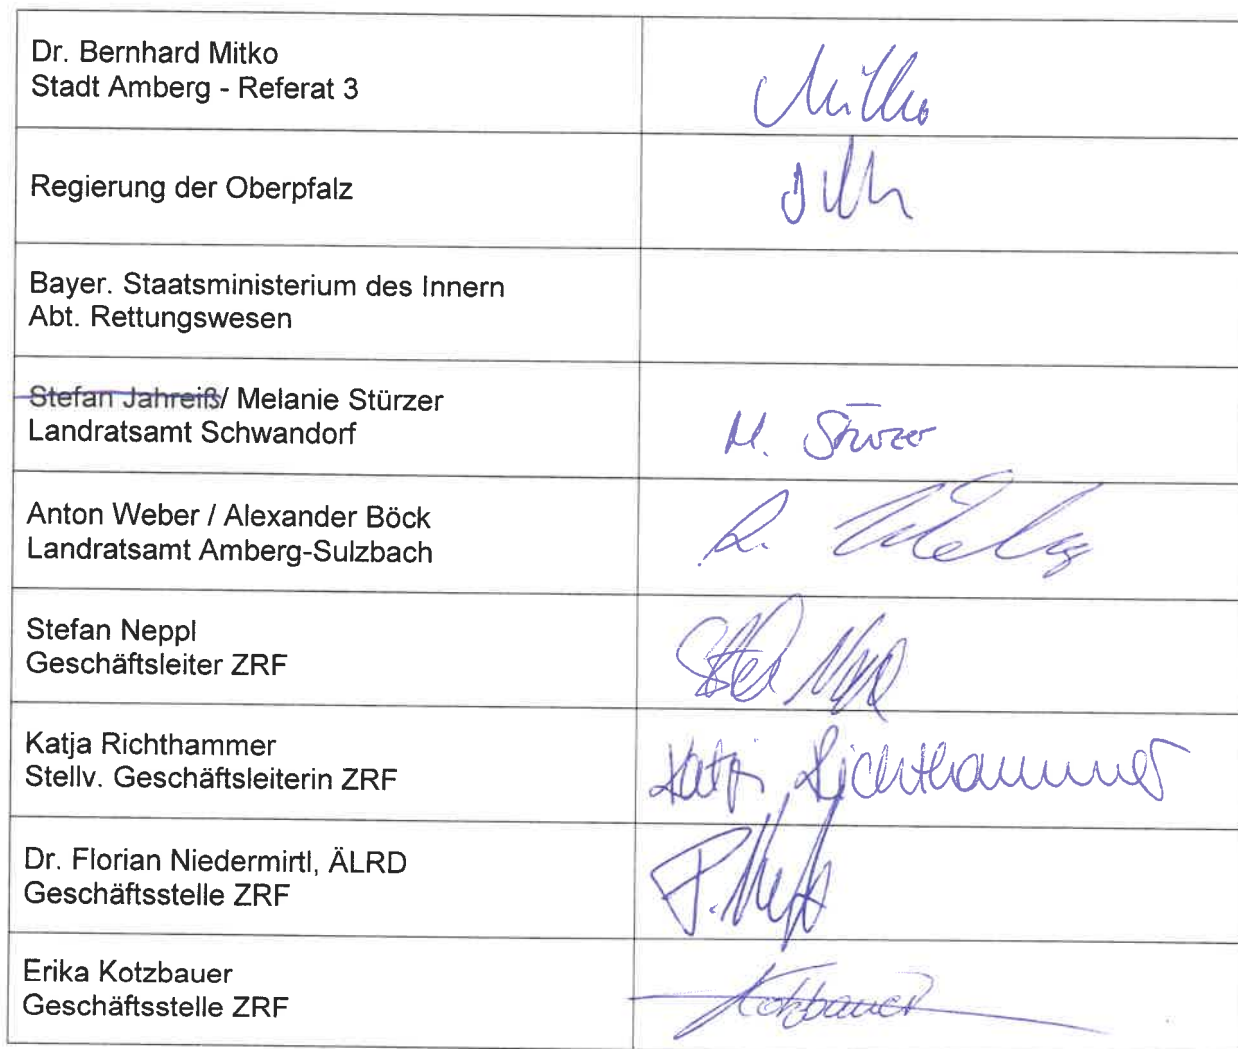 Dr. Bernhard Mitko
Stadt Amberg - Referat 3
Mitko
Regierung der Oberpfalz
Bayer. Staatsministerium des Innern
Abt. Rettungswesen
Stefan Jahreiß/ Melanie Stürzer
Landratsamt Schwandorf
M. Stürzer
Anton Weber / Alexander Böck
Landratsamt Amberg-Sulzbach
Weber
Stefan Neppl
Geschäftsleiter ZRF
Katja Richthammer
Stellv. Geschäftsleiterin ZRF
Katja Richthammer
Dr. Florian Niedermirtl, ÄLRD
Geschäftsstelle ZRF
Erika Kotzbauer
Geschäftsstelle ZRF
Kotzbauer